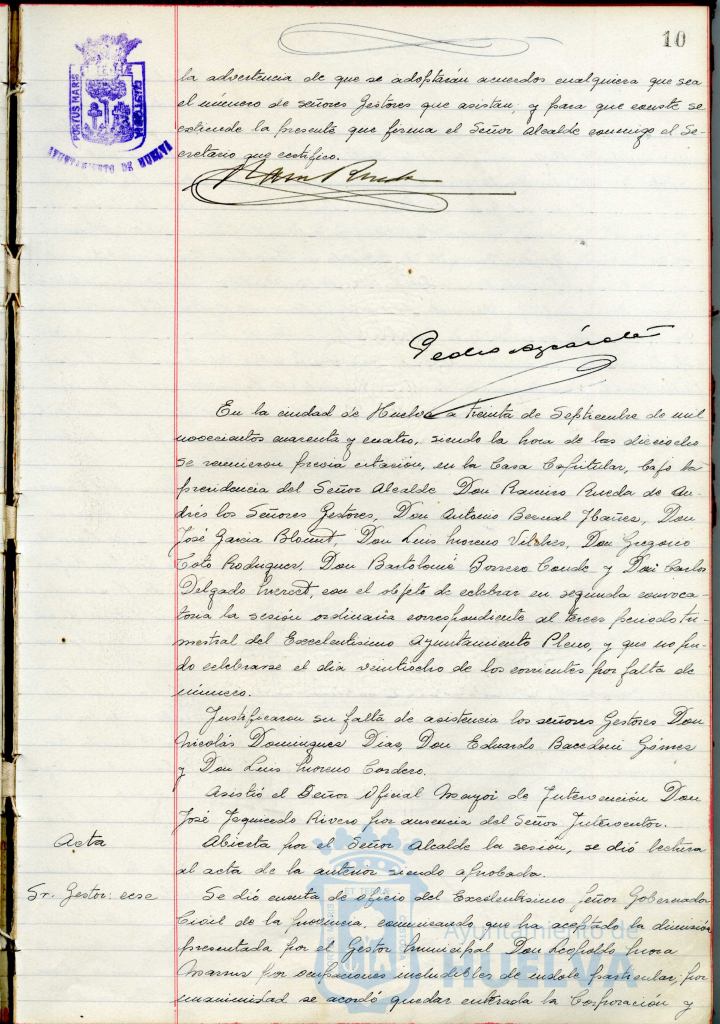 10
PORTUS MARIS
AYUNTAMIENTO DE HUELVA
la advertencia de que se adoptarán acuerdos cualquiera que sea
el número de señores Gestores que asistan, y para que conste se
extiende la presente que firma el Señor Alcalde conmigo el Se-
cretario que certifico.
Pedro
En la ciudad de Huelva a treinta de Septiembre de mil
novecientos cuarenta y cuatro, siendo la hora de las dieciocho
se reunieron previa citación, en la Casa Capitular, bajo la
presidencia del Señor Alcalde Don Ramiro Rueda de An-
drés los Señores Gestores, Don Antonio Bernal Ibañez, Don
José Garcia Blount, Don Luis Moreno Vilches, Don Gregorio
Coto Rodriguez, Don Bartolomé Borrero Conde y Don Carlos
Delgado, con el objeto de celebrar en segunda convoca-
toria la sesión ordinaria correspondiente al tercer periodo tri-
mestral del Excelentisimo Ayuntamiento Pleno, y que no pu-
do celebrarse el día veintiocho de los corrientes por falta de
número.
Justificaron su falta de asistencia los señores Gestores Don
Nicolás Dominguez Diaz, Don Eduardo Gómez
y Don Luis Moreno Cordero.
Asistió el Señor Oficial Mayor de Intervención Don
José Izquierdo Rivero por ausencia del Señor Interventor.
Acta
Abierta por el Señor Alcalde la sesión, se dió lectura
al acta de la anterior siendo aprobada.
Sr. Gestor: cese
Se dió cuenta de oficio del Excelentisimo Señor Gobernador
Civil de la provincia, comunicando que ha aceptado la dimisión
presentada por el Gestor Municipal Don Leopoldo Mora
por ocupaciones ineludibles de indole particular, por
unanimidad se acordó quedar enterada la Corporación y
Ayuntamiento de
HUELVA